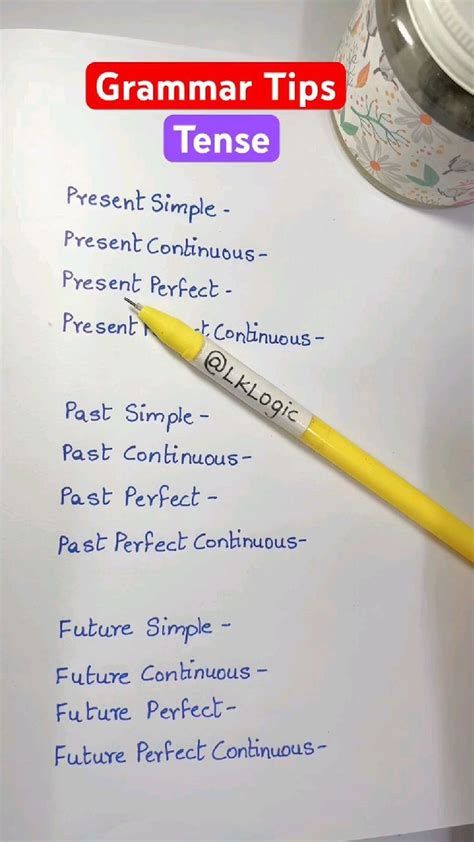 Grammar Tips
Tense
Present Simple -
Present Continuous-
Present Perfect -
Present Continuous -
@LKLogic
Past Simple -
Past Continuous-
Past Perfect -
Past Perfect Continuous-
Future Simple -
Future Continuous -
Future Perfect-
Future Perfect Continuous-